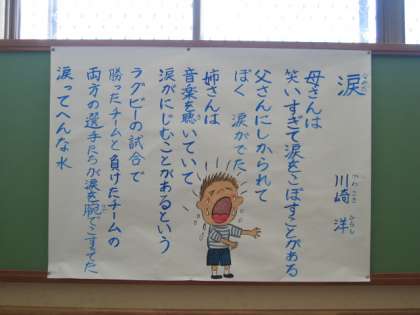 涙
なみだ
川崎 洋
かわさき ひろし
母さんは
笑いすぎて涙をこぼすことがある
父さんにしかられて
ぼく 涙がでた
姉さんは
音楽を聴いていて
涙がにじむことがあるという
ラグビーの試合で
勝ったチームと負けたチームの
両方の選手たちが涙を腕でこすってた
涙ってへんな水